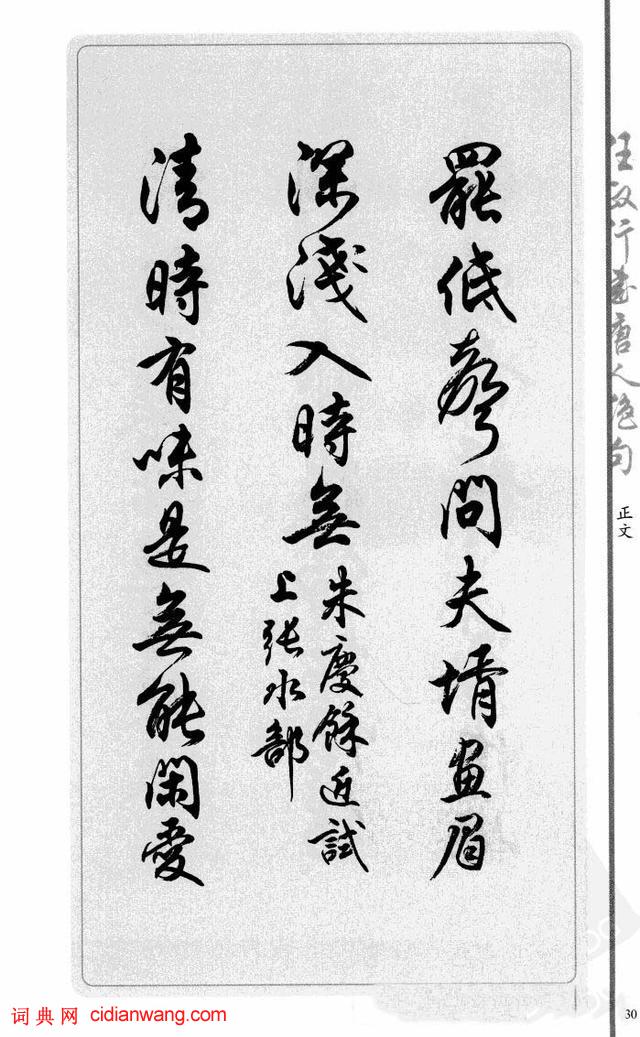 罷低聲問夫壻畫眉
深淺入時無
朱慶餘近試
上張水部
清時有味是無能閑愛
任政行書唐人绝句
正文
30
词典网 cidianwang.com